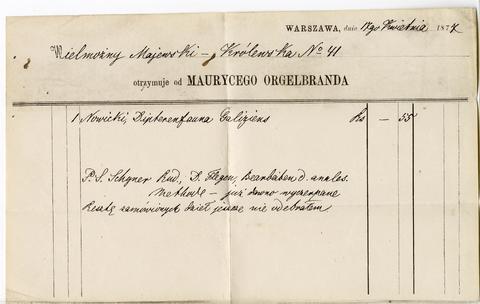 WARSZAWA, dnia 17go Kwietnia 1877
Wielmożny Majewski – Królewska No 41
otrzymuje od MAURYCEGO ORGELBRANDA
1 Nowicki, Dipterenfauna Galiziens Rs – 55
P.S. Schyner Rud., D. Flegen, Bearbeiten d. annles.
Methode – już dawno wyczerpane
Resztę zamówionych dzieł jeszcze nie odebrałem